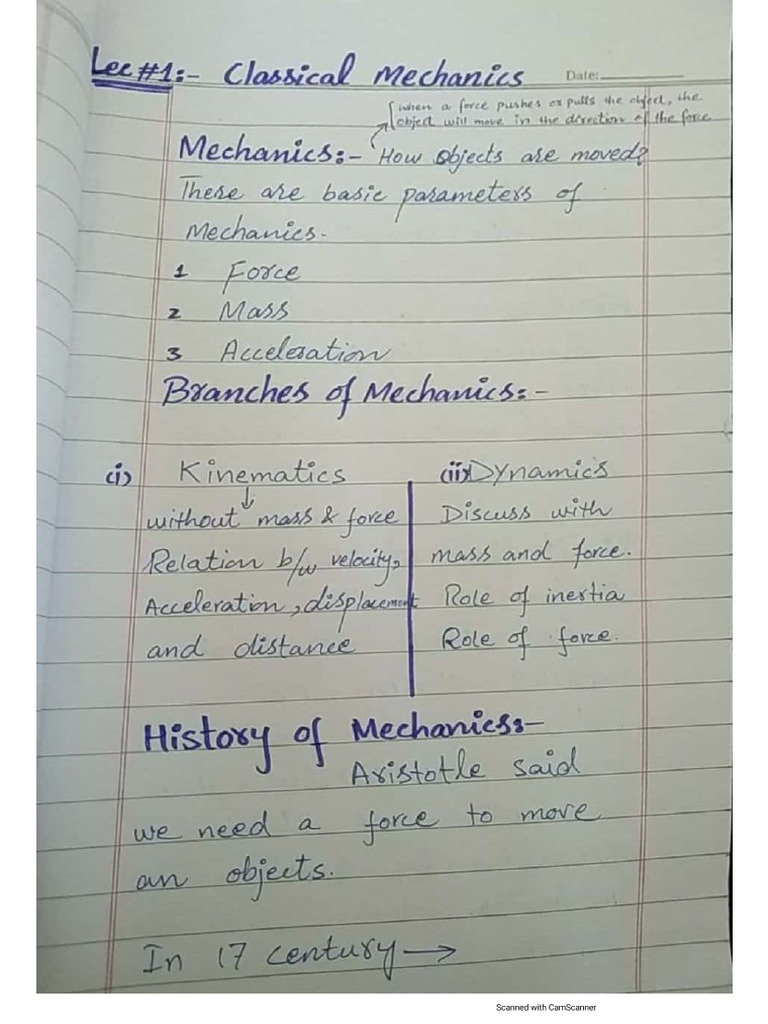 Lec #1:- Classical Mechanics Date:
when a force pushes or pulls the object, the
object will move in the direction of the force
Mechanics:- How objects are moved?
There are basic parameters of
Mechanics.
1 Force
2 Mass
3 Acceleration
Branches of Mechanics:-
(i) Kinematics
without mass & force
Relation b/w velocity,
Acceleration, displacement
and distance
(ii) Dynamics
Discuss with
mass and force.
Role of inertia
Role of force.
History of Mechanics:-
Aristotle said
we need a force to move
an objects.
In 17 century →
Scanned with CamScanner